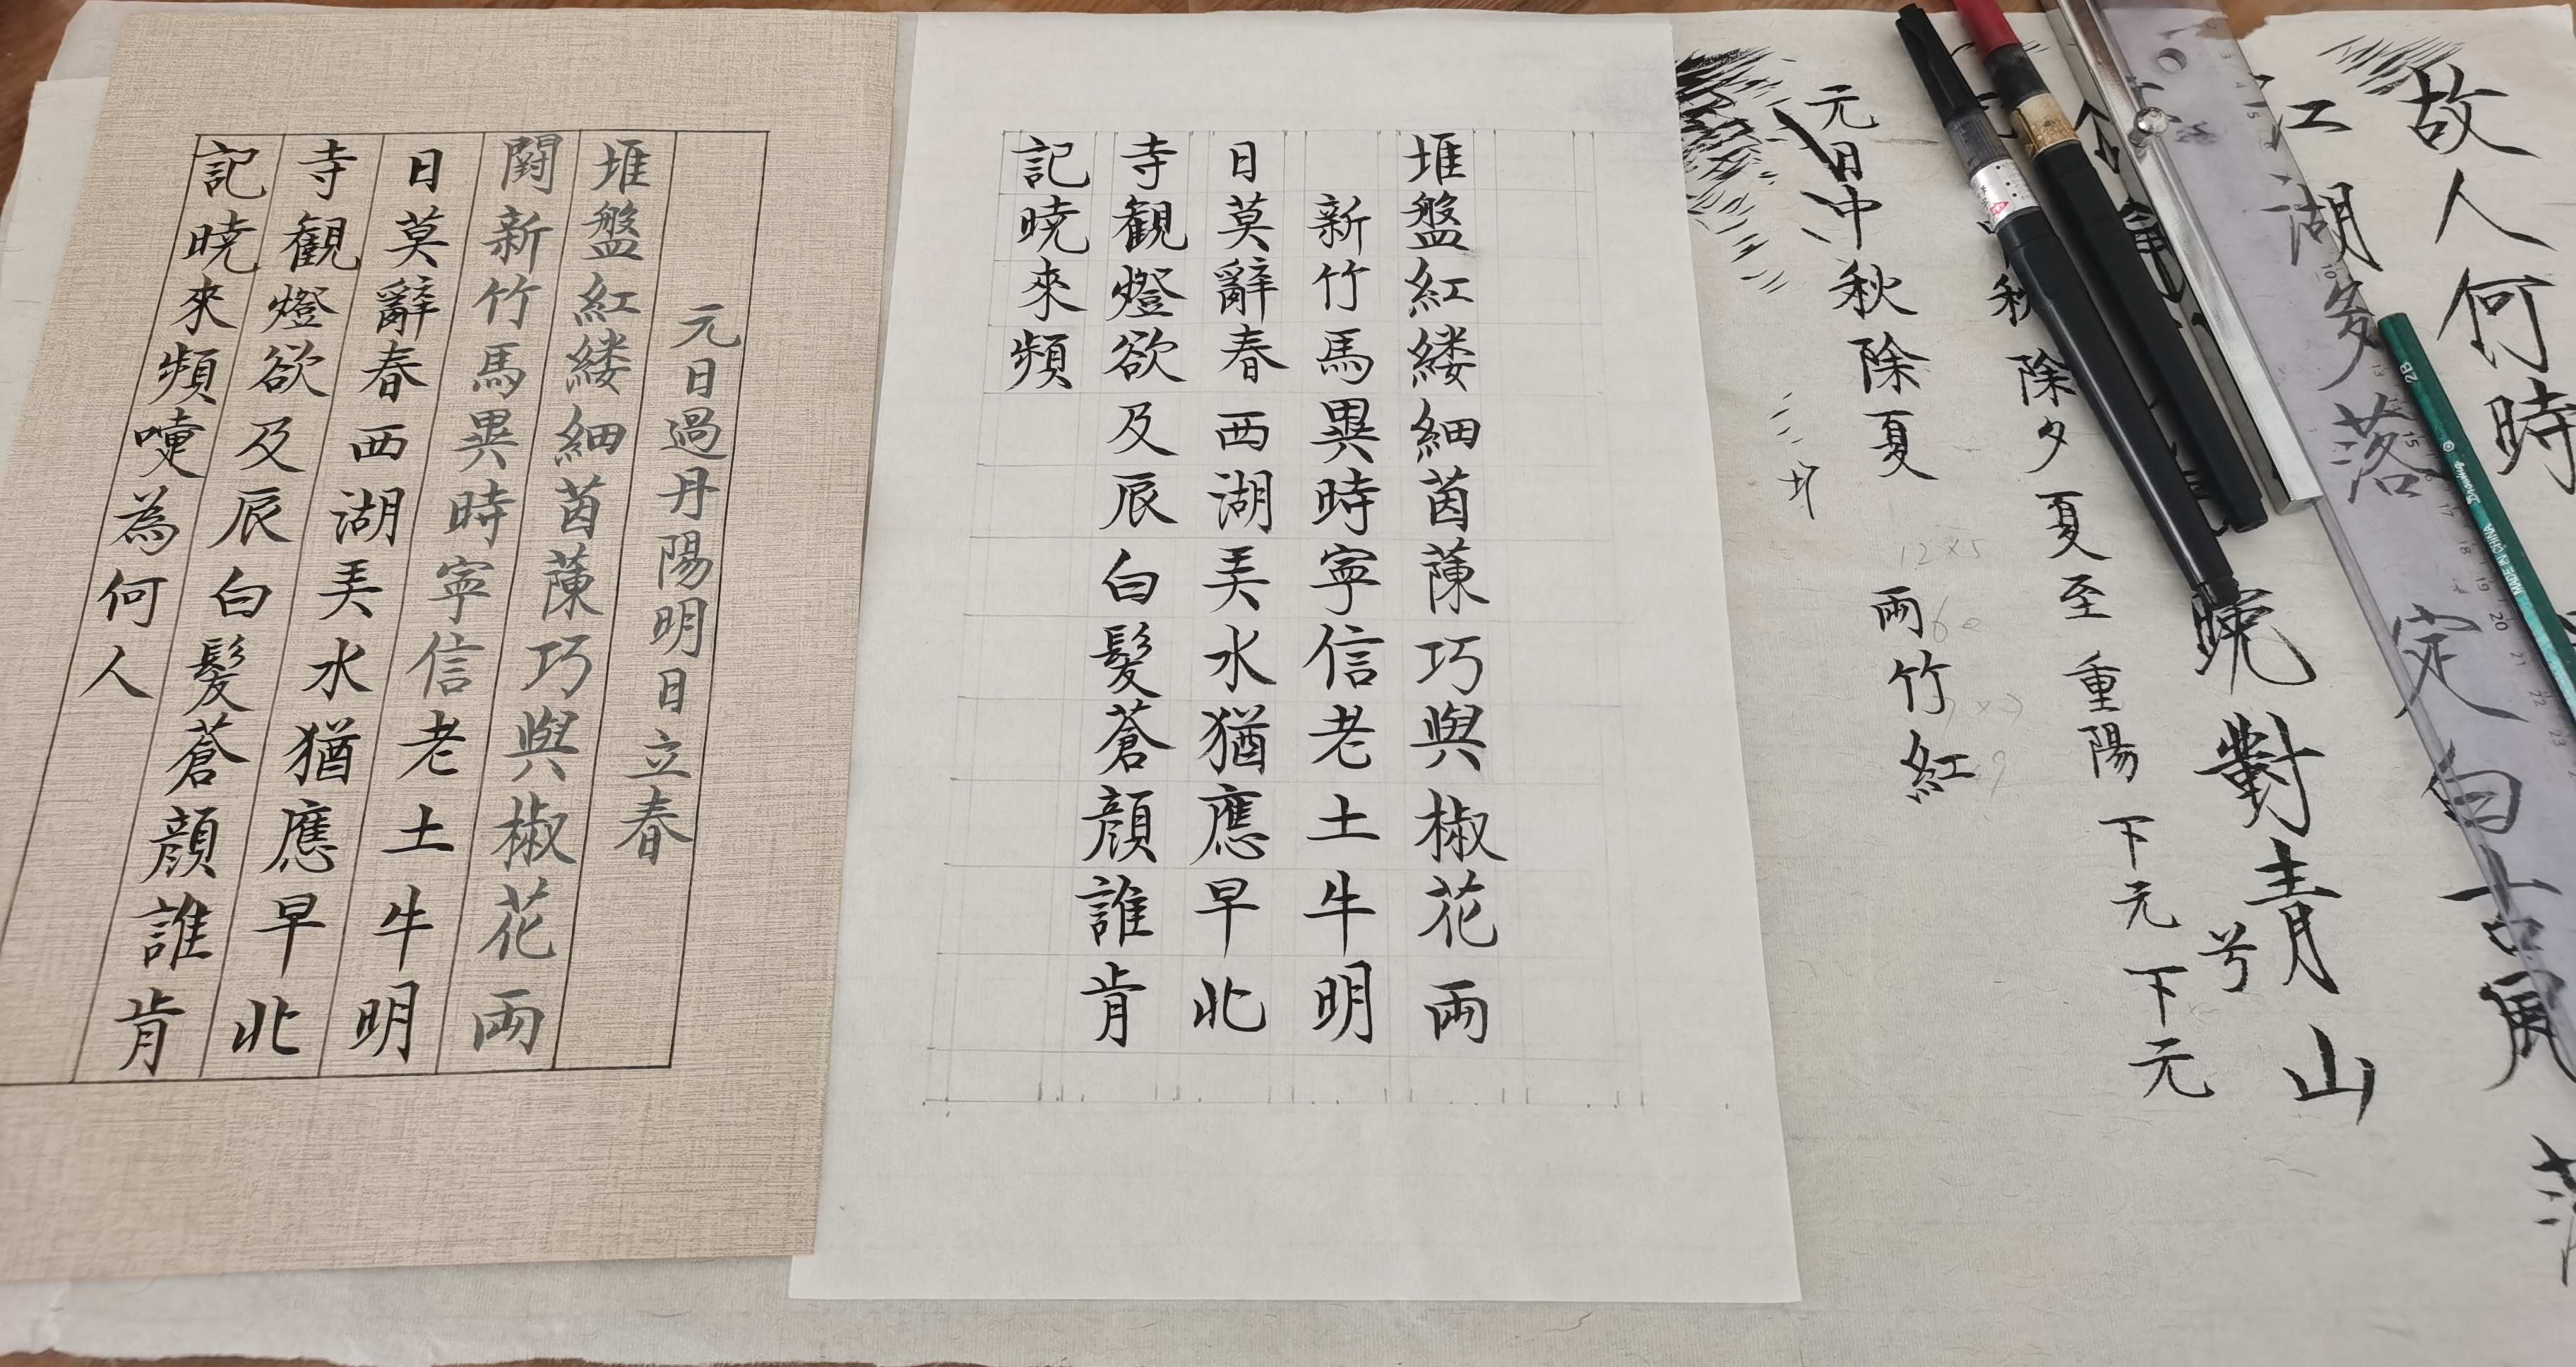 元日過丹陽明日立春
堆盤紅縷細茵蔯巧與椒花兩
闘新竹馬異時寧信老土牛明
日莫辭春西湖弄水猶應早北
寺観燈欲及辰白髮蒼顔誰肯
記暁來頻嚏為何人
堆盤紅縷細茵蔯巧與椒花兩
新竹馬異時寧信老土牛明
日莫辭春西湖弄水猶應早北
寺観燈欲及辰白髮蒼顔誰肯
記暁來頻
故人何時
江湖多落定白
晚對青山
兮
秋除夕夏至重陽下元下元
元日中秋除夏
兩竹紅
12×5
2B
MADE IN CHINA